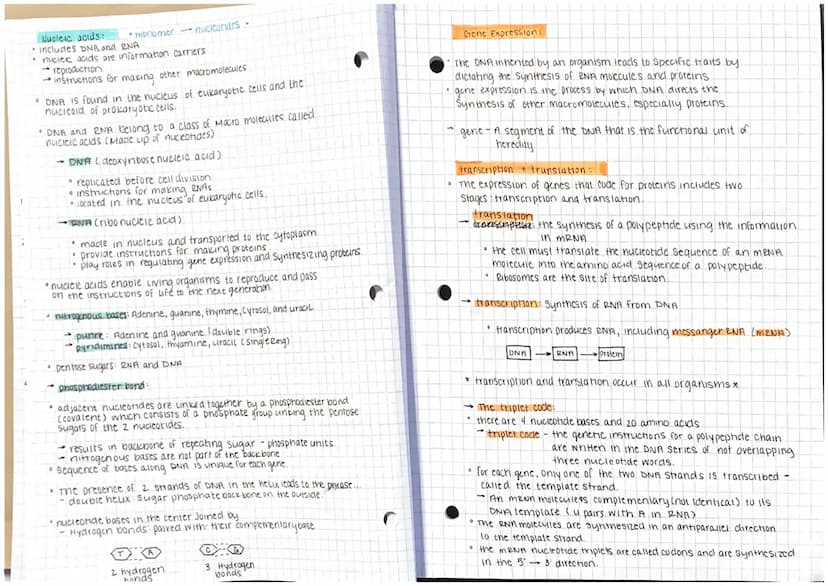 Nucleic acids: • monomer → nucleotides •
• includes DNA and RNA
• nucleic acids are information carriers
→ reproduction
→ instructions for making other macromolecules
• DNA is found in the nucleus of eukaryotic cells and the
nucleoid of prokaryotic cells.
• DNA and RNA belong to a class of macro molecules called
nucleic acids (made up of nucleotides)
→ DNA (deoxyribose nucleic acid)
• replicated before cell division
• instructions for making RNAs
• located in the nucleus of eukaryotic cells.
→ RNA (ribonucleic acid)
• made in nucleus and transported to the cytoplasm
• provide instructions for making proteins
• play roles in regulating gene expression and synthesizing proteins.
• nucleic acids enable living organisms to reproduce and pass
on the instructions of life to the next generation.
• nitrogenous bases: Adenine, guanine, thymine, cytosol, and uracil
→ purine: Adenine and guanine (double rings)
→ pyridimines: cytosol, thyamine, uracil (single ring)
• pentose sugars: RNA and DNA
→ phosphodiester bond:
• adjacent nucleotides are linked together by a phosphodiester bond
(covalent) which consists of a phosphate group linking the pentose
sugars of the 2 nucleotides.
→ results in backbone of repeating sugar - phosphate units.
→ nitrogenous bases are not part of the backbone
• sequence of bases along DNA is unique for each gene.
• The presence of 2 strands of DNA in the helix leads to the phrase...
- double helix: sugar phosphate backbone on the outside.
• nucleotide bases in the center joined by
- Hydrogen bonds: paired with their complementary base
T A C G
2 hydrogen 3 Hydrogen
bonds bonds
Gene Expression:
• The DNA inherited by an organism leads to specific traits by
dictating the synthesis of RNA molecules and proteins
• gene expression is the process by which DNA directs the
synthesis of other macromolecules, especially proteins.
→ gene - A segment of the DNA that is the functional unit of
heredity
transcription + translation:
• The expression of genes that code for proteins includes two
stages: transcription and translation.
translation
→ transcription: the synthesis of a polypeptide using the information
in mRNA
• the cell must translate the nucleotide sequence of an mRNA
molecule into the amino acid sequence of a polypeptide
• Ribosomes are the site of translation.
→ transcription: synthesis of RNA from DNA
• transcription produces RNA, including messanger RNA (mRNA)
DNA → RNA → Protein
* transcription and translation occur in all organisms *
→ The triplet code:
• there are 4 nucleotide bases and 20 amino acids
→ triplet code - the genetic instructions for a polypeptide chain
are written in the DNA series of not overlapping
three nucleotide words.
• for each gene, only one of the two DNA strands is transcribed -
called the template strand.
→ An mRNA molecule is complementary (not identical) to its
DNA template (U pairs with A in RNA)
• The RNA molecules are synthesized in an antiparallel direction
to the template strand.
• the mRNA nucleotide triplets are called codons and are synthesized
in the 5' → 3' direction.